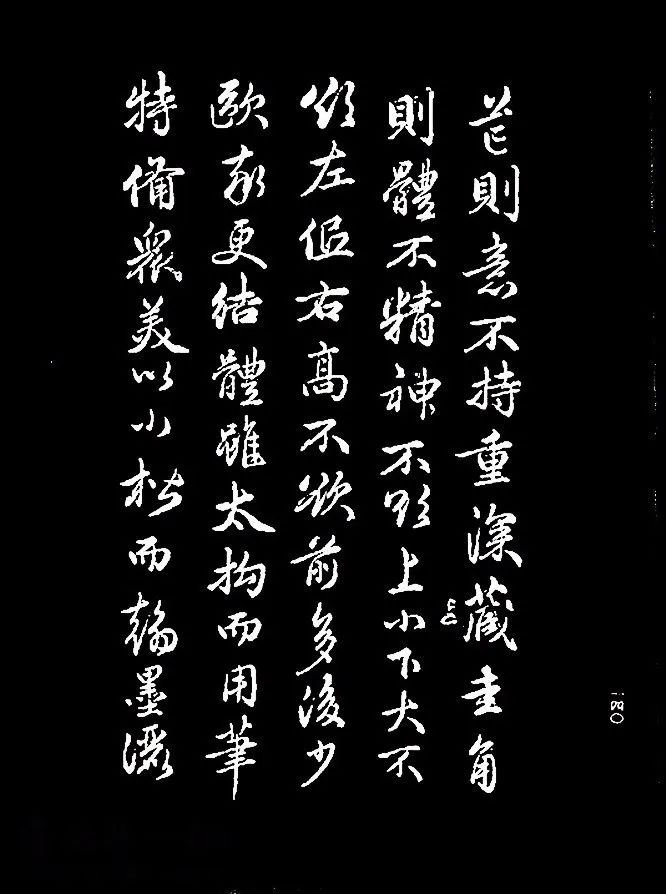 芒則意不持重深藏圭角
則體不精神不欲上小下大不
欲左低右高不欲前多後少
歐率更結體雖太拘而用筆
特備衆美以小楷而翰墨灑
一四〇